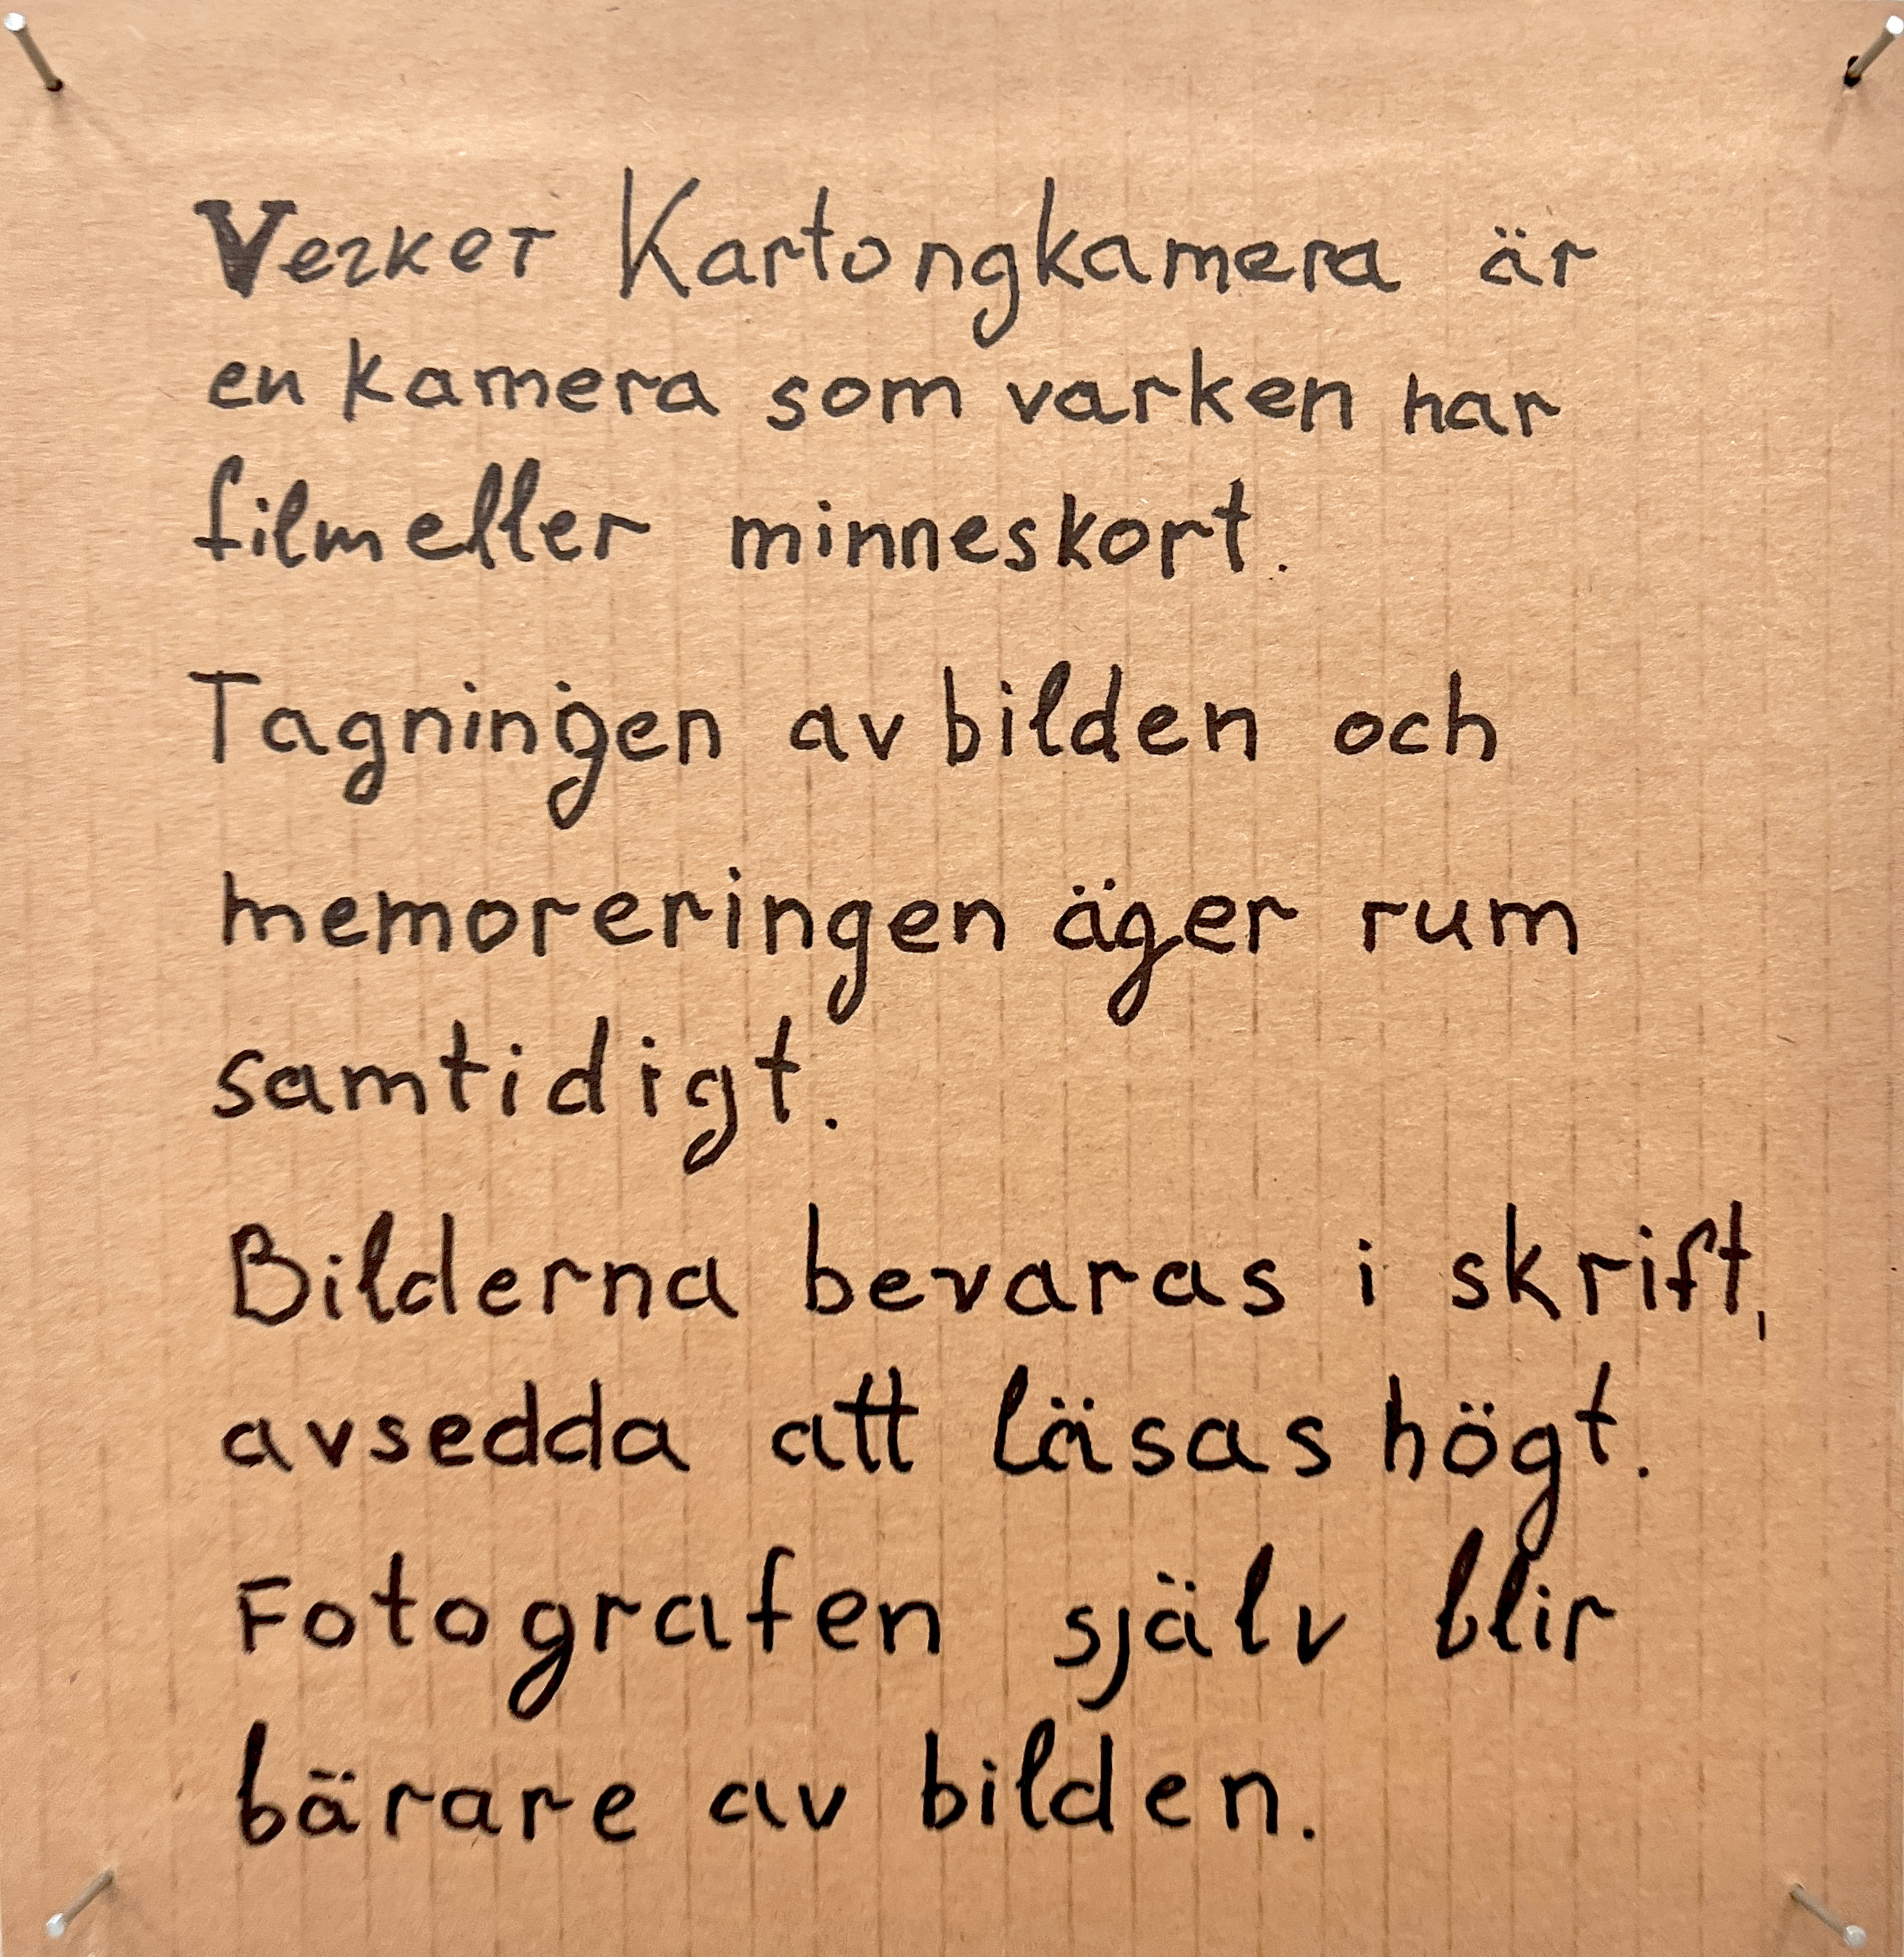 Verket Kartongkamera är
en kamera som varken har
film eller minneskort.
Tagningen av bilden och
memoreringen äger rum
samtidigt.
Bilderna bevaras i skrift,
avsedda att läsas högt.
Fotografen själv blir
bärare av bilden.